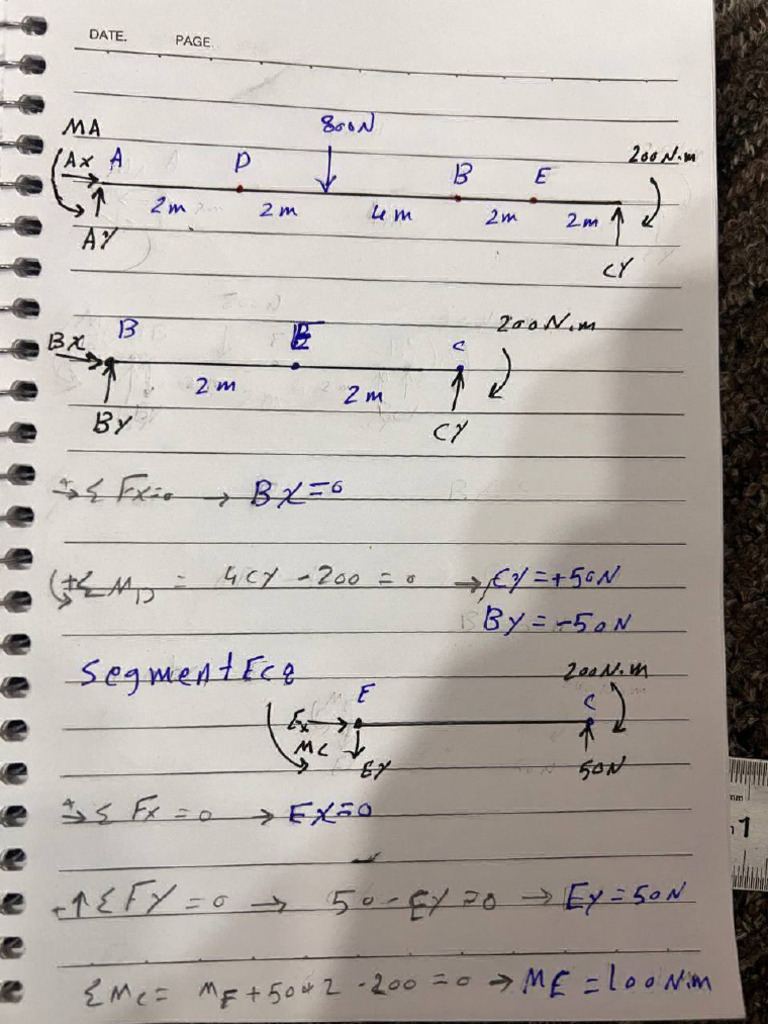 DATE. PAGE.
MA 800N
Ax A D B E 200N.m
2m 2m 4m 2m 2m
AY CY
Bx B E C 200N.m
2m 2m
BY CY
+→ Σ Fx=0 → Bx=0
(+Σ MB = 4CY - 200 = 0 → CY = +50N
BY = -50N
Segment Ec8
E C 200N.m
Ex
MC EY 50N
+→ Σ Fx = 0 → Ex=0
+↑ΣFY = 0 → 50 - EY = 0 → EY = 50N
ΣMC = ME + 50*2 - 200 = 0 → ME = 100N.m
mm
1